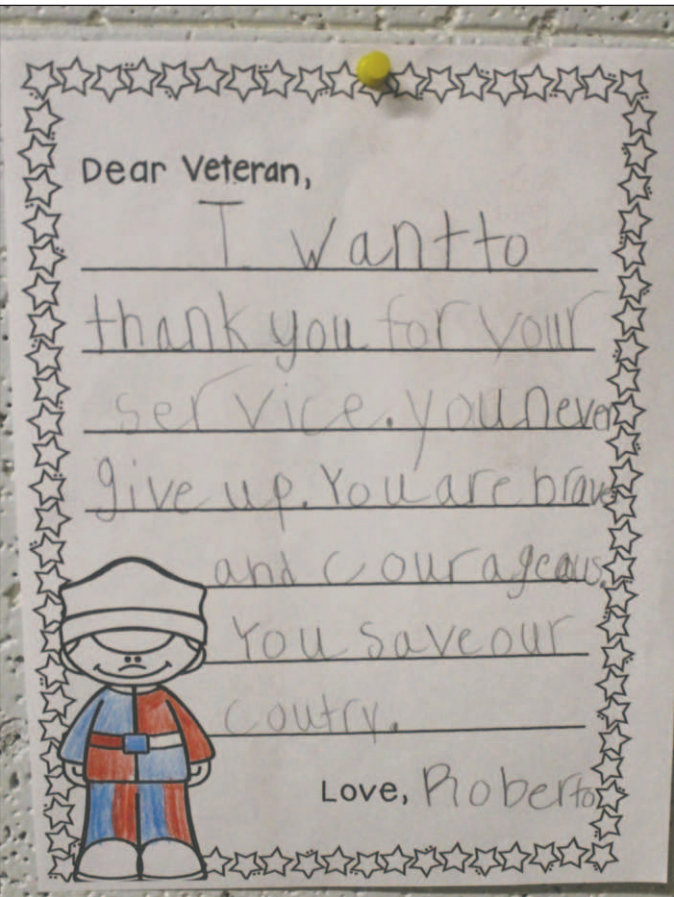 Dear Veteran,
I want to
thank you for your
service. you never
give up. You are brave
and courageous.
You save our
coutry.
Love, Roberto